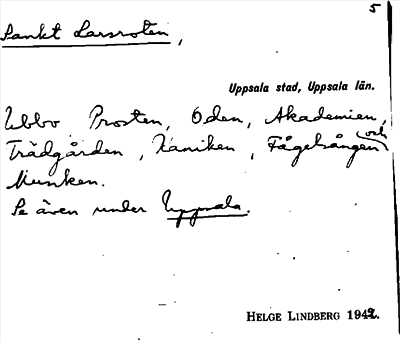 5
Sankt Larsroten,
Uppsala stad, Uppsala län.
Ubbo Prosten, Oden, Akademien,
Trädgården, Kaniken, Fågelsången och
Munken.
Se även under Uppsala.
HELGE LINDBERG 1942.